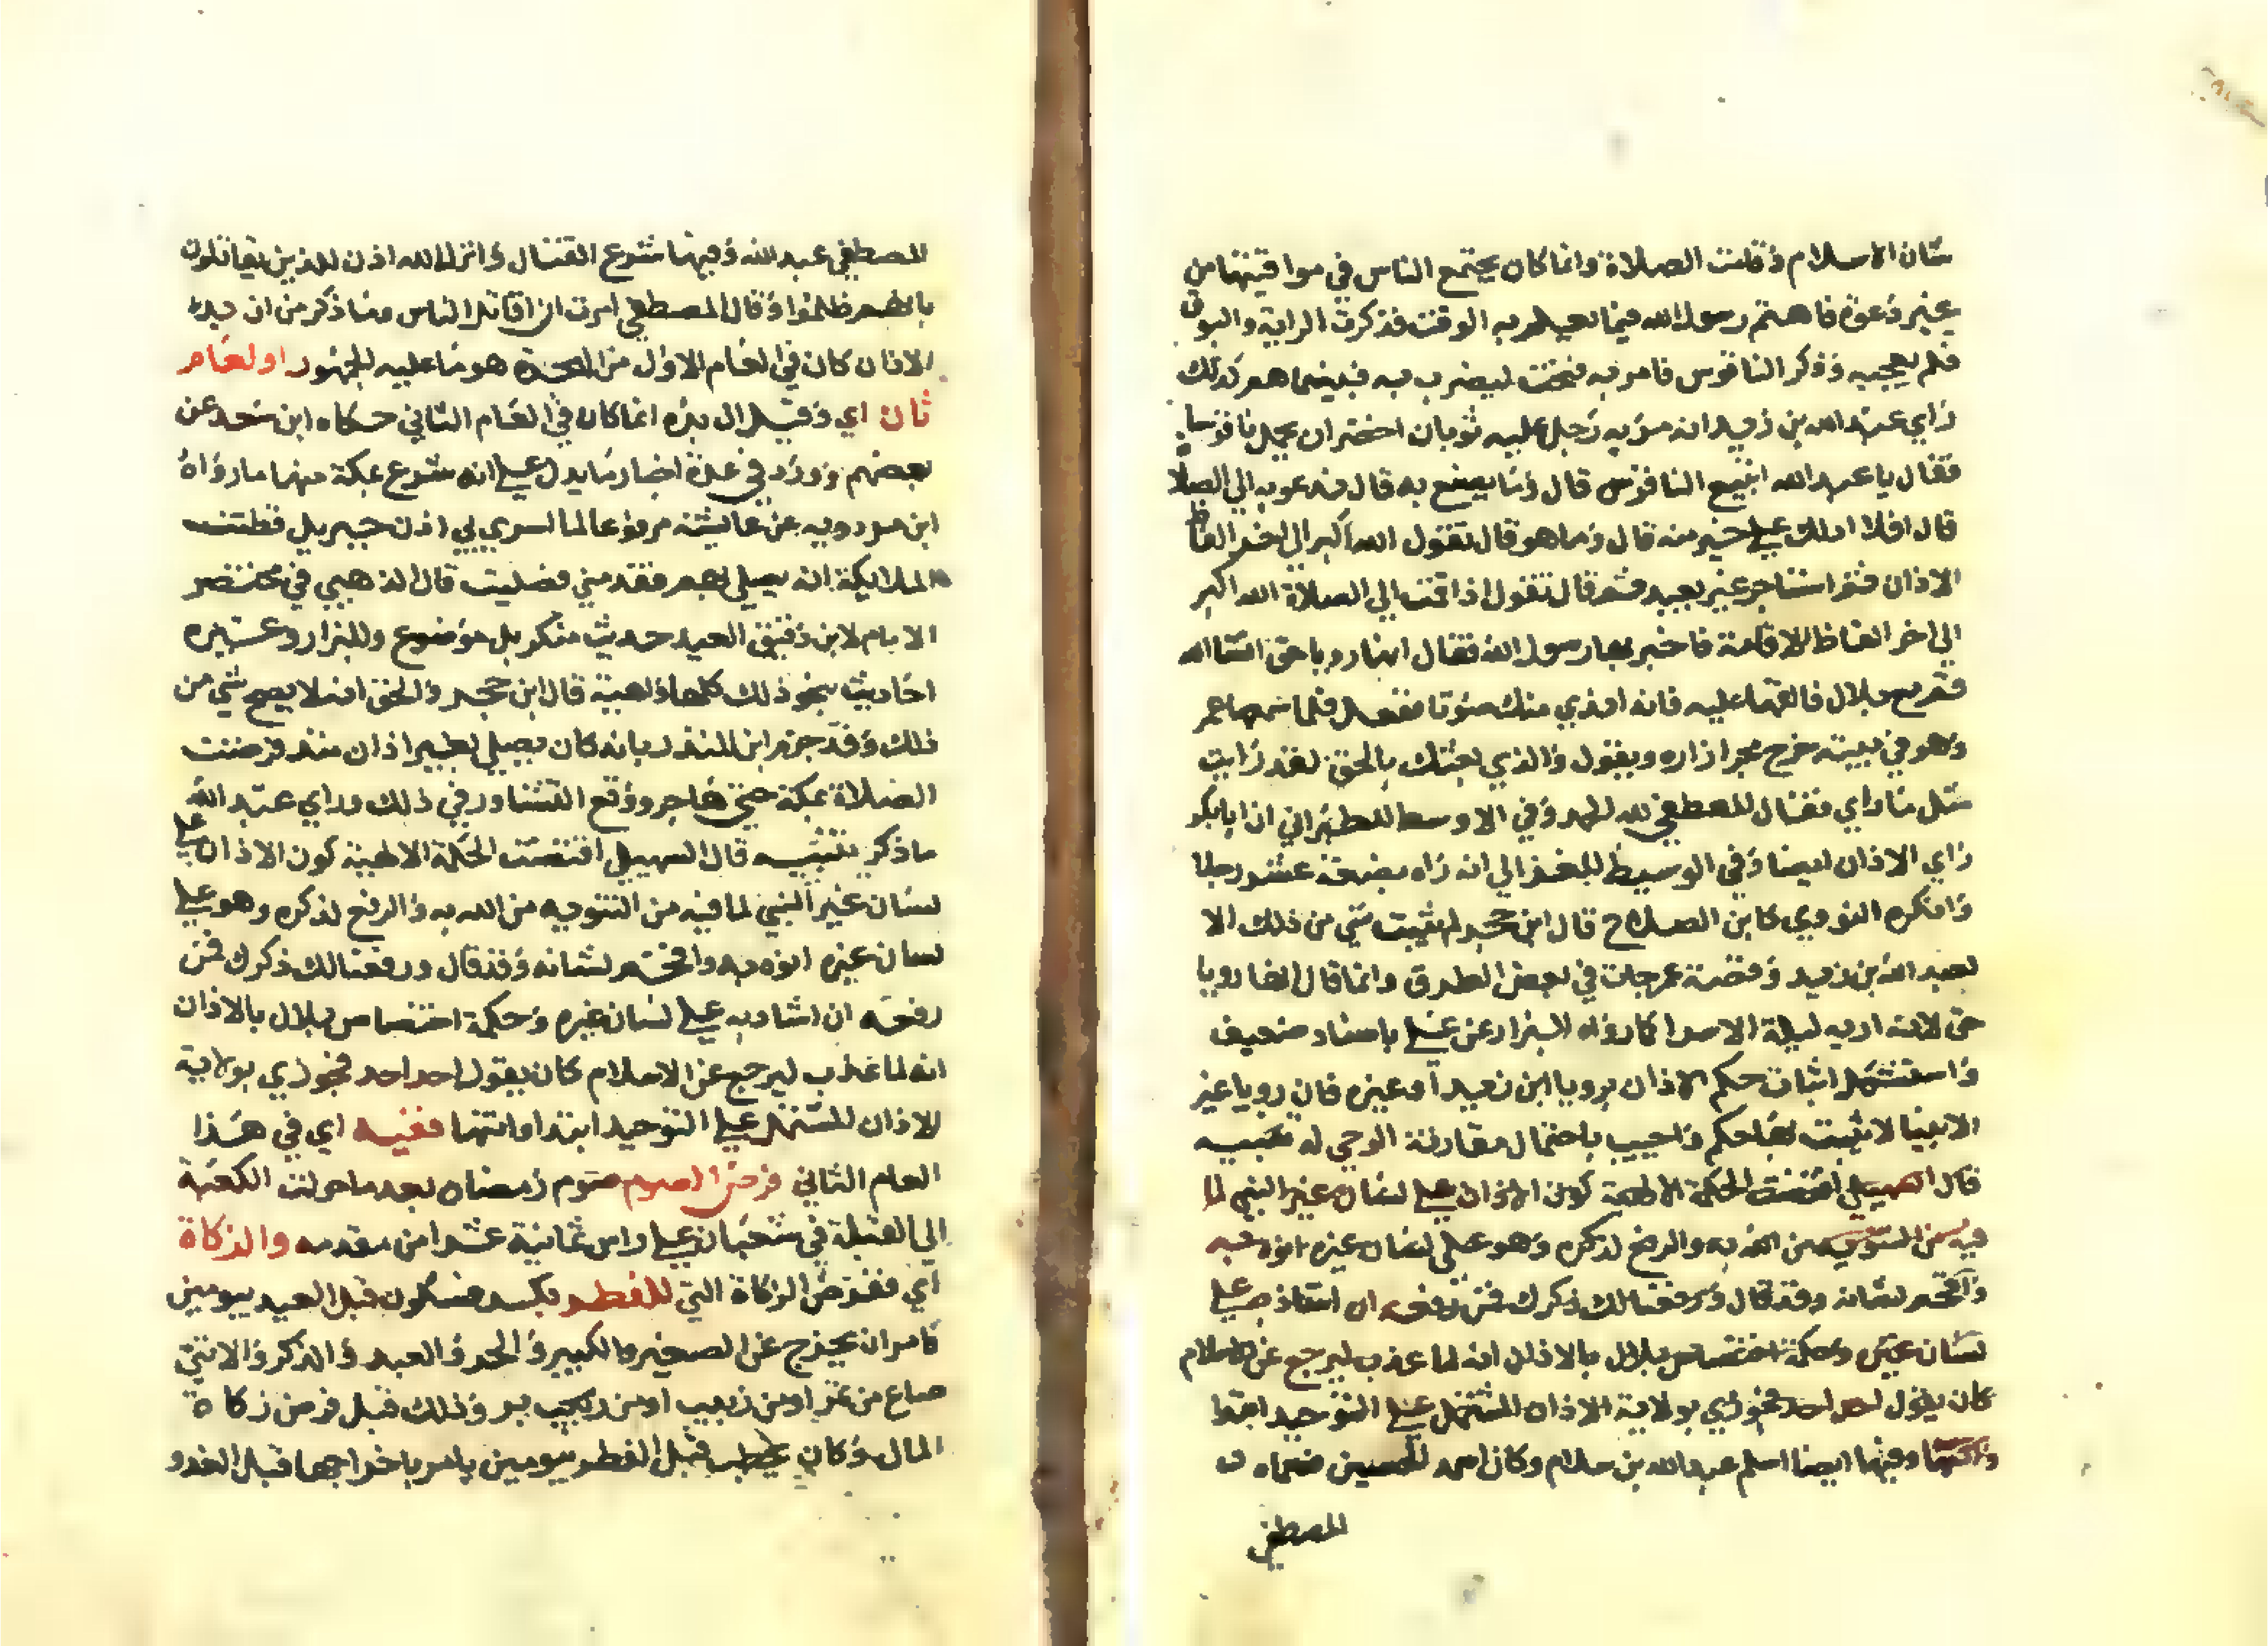 شان الاسلام وقامت الصلاة وانما كان يجتمع الناس في مواقيتها من
غير دعوة فاهتم رسول الله فيما يعلم به الوقت فذكرت الراية والبوق
فلم يعجبه وذكر الناقوس فامر به فنحت ليضرب به فبينما هم كذلك
راي عبد الله بن زيد انه مر به رجل عليه ثوبان اخضران يحمل ناقوسا
فقال يا عبد الله اتبيع الناقوس قال وما يصنع به قال ندعو به الي الصلا
قال افلا ادلك علي خير منه قال وما هو قال تقول الله اكبر الي اخر الفاظ
الاذان ثم استاخر غير بعيد ثم قال تقول اذا قمت الي الصلاة الله اكبر
الي اخر الفاظ الاقامة فاخبر بها رسول الله فقال انها رويا حق انشا الله
قم مع بلال فالقها عليه فانه اندي منك صوتا ففعل فلما سمعها عمر
وهو في بيته خرج يجر ازاره ويقول والذي بعثك بالحق لقد رايت
مثل ما راي فقال المصطفي لله الحمد وفي الاوسط للطبراني ان ابا بكر
راي الاذان ايضا وفي الوسيط للغزالي انه راه بضعة عشر رجلا
وانكره النووي كابن الصلاح قال ابن حجر لم يثبت شي من ذلك الا
لعبد الله بن زيد وقصة عمر جات في بعض الطرق وانما قال انها رويا
حق لانه اريه ليلة الاسرا كما رواه البزار عن علي باسناد ضعيف
واستشكل اثبات حكم الاذان برويا ابن زيد او غيره فان رويا غير
الانبيا لا يثبت بها حكم واجيب باحتمال مقارنة الوحي له تنبيه
قال السهيلي اقتضت الحكمة الالهية كون الاذان علي لسان غير النبي لما
فيه من التنويه من الله به والرفع لذكره وهو علي لسان غيره انوه به
وافخم لشانه وقد قال ورفعنا لك ذكرك فمن رفعه ان اشاد به علي
لسان غيره وحكمة اختصاص بلال بالاذان انه لما عذب ليرجع عن الاسلام
كان يقول احد احد فجوزي بولاية الاذان المشتمل علي التوحيد ابتدا
وانتها وفيها ايضا اسلم عبد الله بن سلام وكان اسمه الحصين فسماه
المصطفي
المصطفي عبد الله وفيها شرع القتال وانزل الله اذن للذين يقاتلون
بانهم ظلموا وقال المصطفي امرت ان اقاتل الناس وما ذكر من ان بدء
الاذان كان في العام الاول من الهجرة هو ما عليه الجمهور او لعام
ثان اي وقيل ان بدءه انما كان في العام الثاني حكاه ابن سعد عن
بعضهم وورد في عدة اخبار ما يدل علي انه شرع بمكة منها ما رواه
ابن مردويه عن عايشة مرفوعا لما اسري بي اذن جبريل فظنت
الملايكة انه يصلي بهم فقدمني فصليت قال الذهبي في مختصر
الامام لابن دقيق العيد حديث منكر بل موضوع وللبزار وغيره
احاديث بنحو ذلك كلها واهية قال ابن حجر والحق انه لا يصح شي من
ذلك وقد جزم ابن المنذر بانه كان يصلي بغير اذان منذ فرضت
الصلاة بمكة حتي هاجر ووقع التشاور في ذلك وراي عبد الله
ما ذكر تنبيه قال السهيلي اقتضت الحكمة الالهية كون الاذان علي
لسان غير النبي لما فيه من التنويه من الله به والرفع لذكره وهو علي
لسان غيره انوه به وافخم لشانه وقد قال ورفعنا لك ذكرك فمن
رفعه ان اشاد به علي لسان غيره وحكمة اختصاص بلال بالاذان
انه لما عذب ليرجع عن الاسلام كان يقول احد احد فجوزي بولاية
الاذان المشتمل علي التوحيد ابتدا وانتها ففيه اي في هذا
العام الثاني فرض الصوم صوم رمضان بعد ما حولت الكعبة
الي القبلة في شعبان علي راس ثمانية عشر من مقدمه والزكاة
اي ففرض الزكاة التي للفطر بكسر فسكون قبل العيد بيومين
فامر ان يخرج عن الصغير والكبير والحر والعبد والذكر والانثي
صاع من تمر او من زبيب او من بر وذلك قبل فرض زكاة
المال وكان يخطب قبل الفطر بيومين يامر باخراجها قبل الغدو